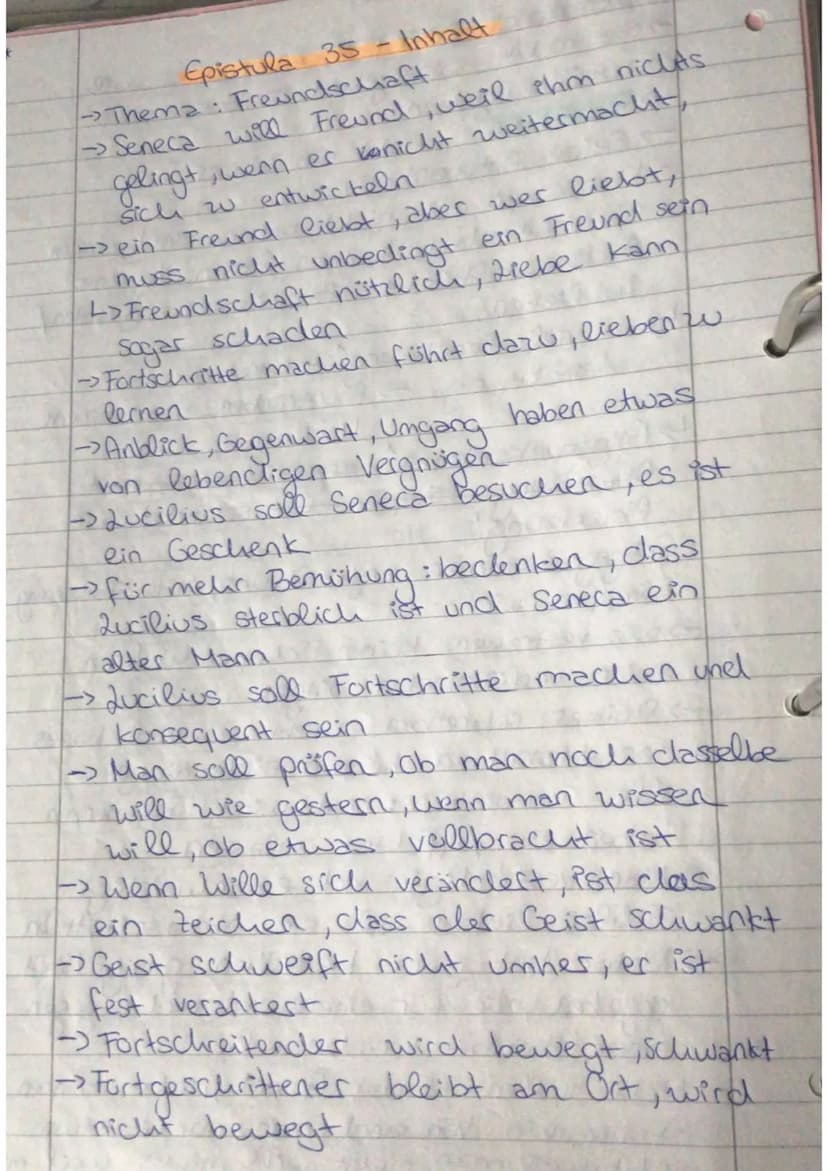 Epistula 35 - Inhalt
→ Thema: Freundschaft
→ Seneca will Freund, weil ihm nichts
gelingt, wenn er nicht weitermacht,
sich zu entwickeln
→ ein Freund liebt, aber wer liebt,
muss nicht unbedingt ein Freund sein
↳ Freundschaft nützlich, Liebe kann
sogar schaden
→ Fortschritte machen führt dazu, lieben zu
lernen
→ Anblick, Gegenwart, Umgang haben etwas
von lebendigen Vergnügen
→ Lucilius soll Seneca besuchen, es ist
ein Geschenk
→ für mehr Bemühung: bedenken, dass
Lucilius sterblich ist und Seneca ein
alter Mann
→ Lucilius soll Fortschritte machen und
konsequent sein
→ Man soll prüfen, ob man noch dasselbe
will wie gestern, wenn man wissen
will, ob etwas vollbracht ist
→ Wenn Wille sich verändert, ist das
ein Zeichen, dass der Geist schwankt
→ Geist schweift nicht umher, er ist
fest verankert
→ Fortschreitender wird bewegt, schwankt
→ Fortgeschrittener bleibt am Ort, wird
nicht bewegt